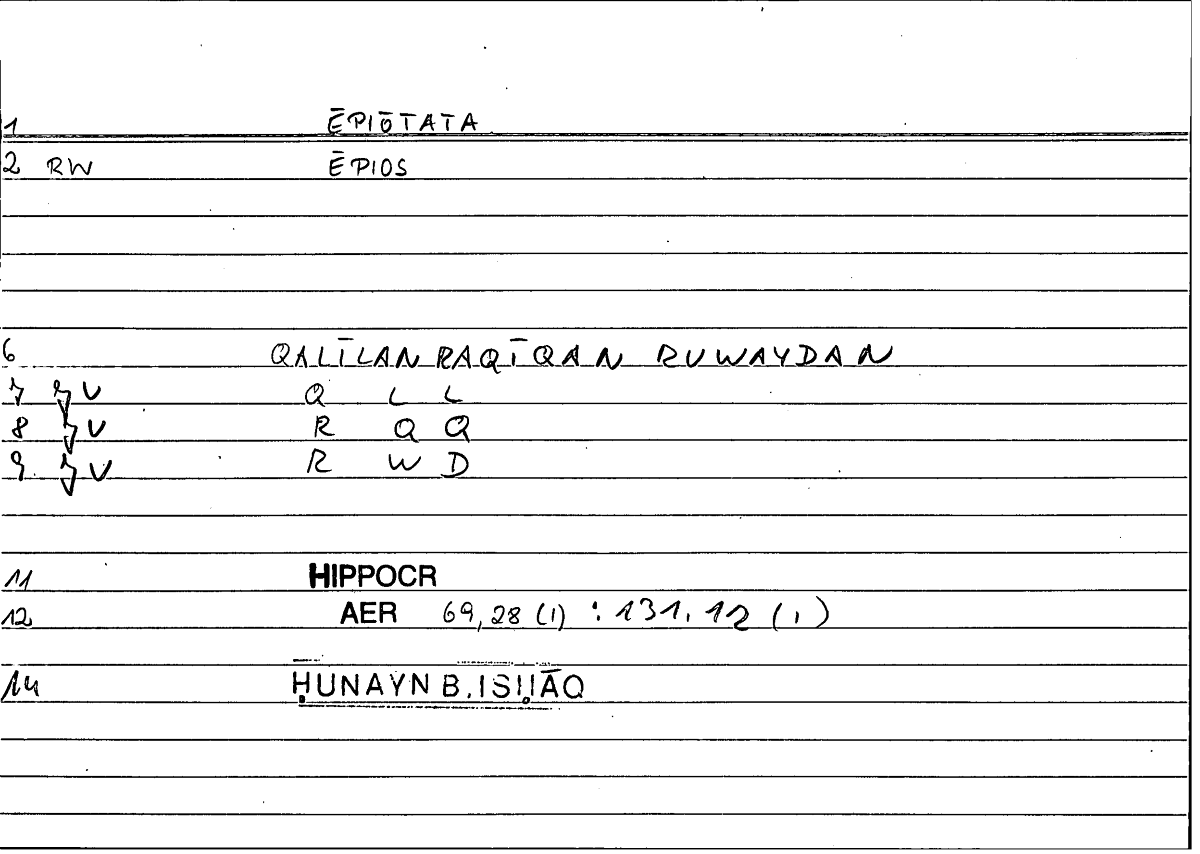 1 ĒPIŌTATA
2 RW ĒPIOS
6 QALĪLAN RAQĪQAN RUWAYDAN
7 V Q L L
8 V R Q Q
9 V R W D
11 HIPPOCR
12 AER 69,28 (1) : 131,12 (1)
14 ḤUNAYN B. ISḤĀQ